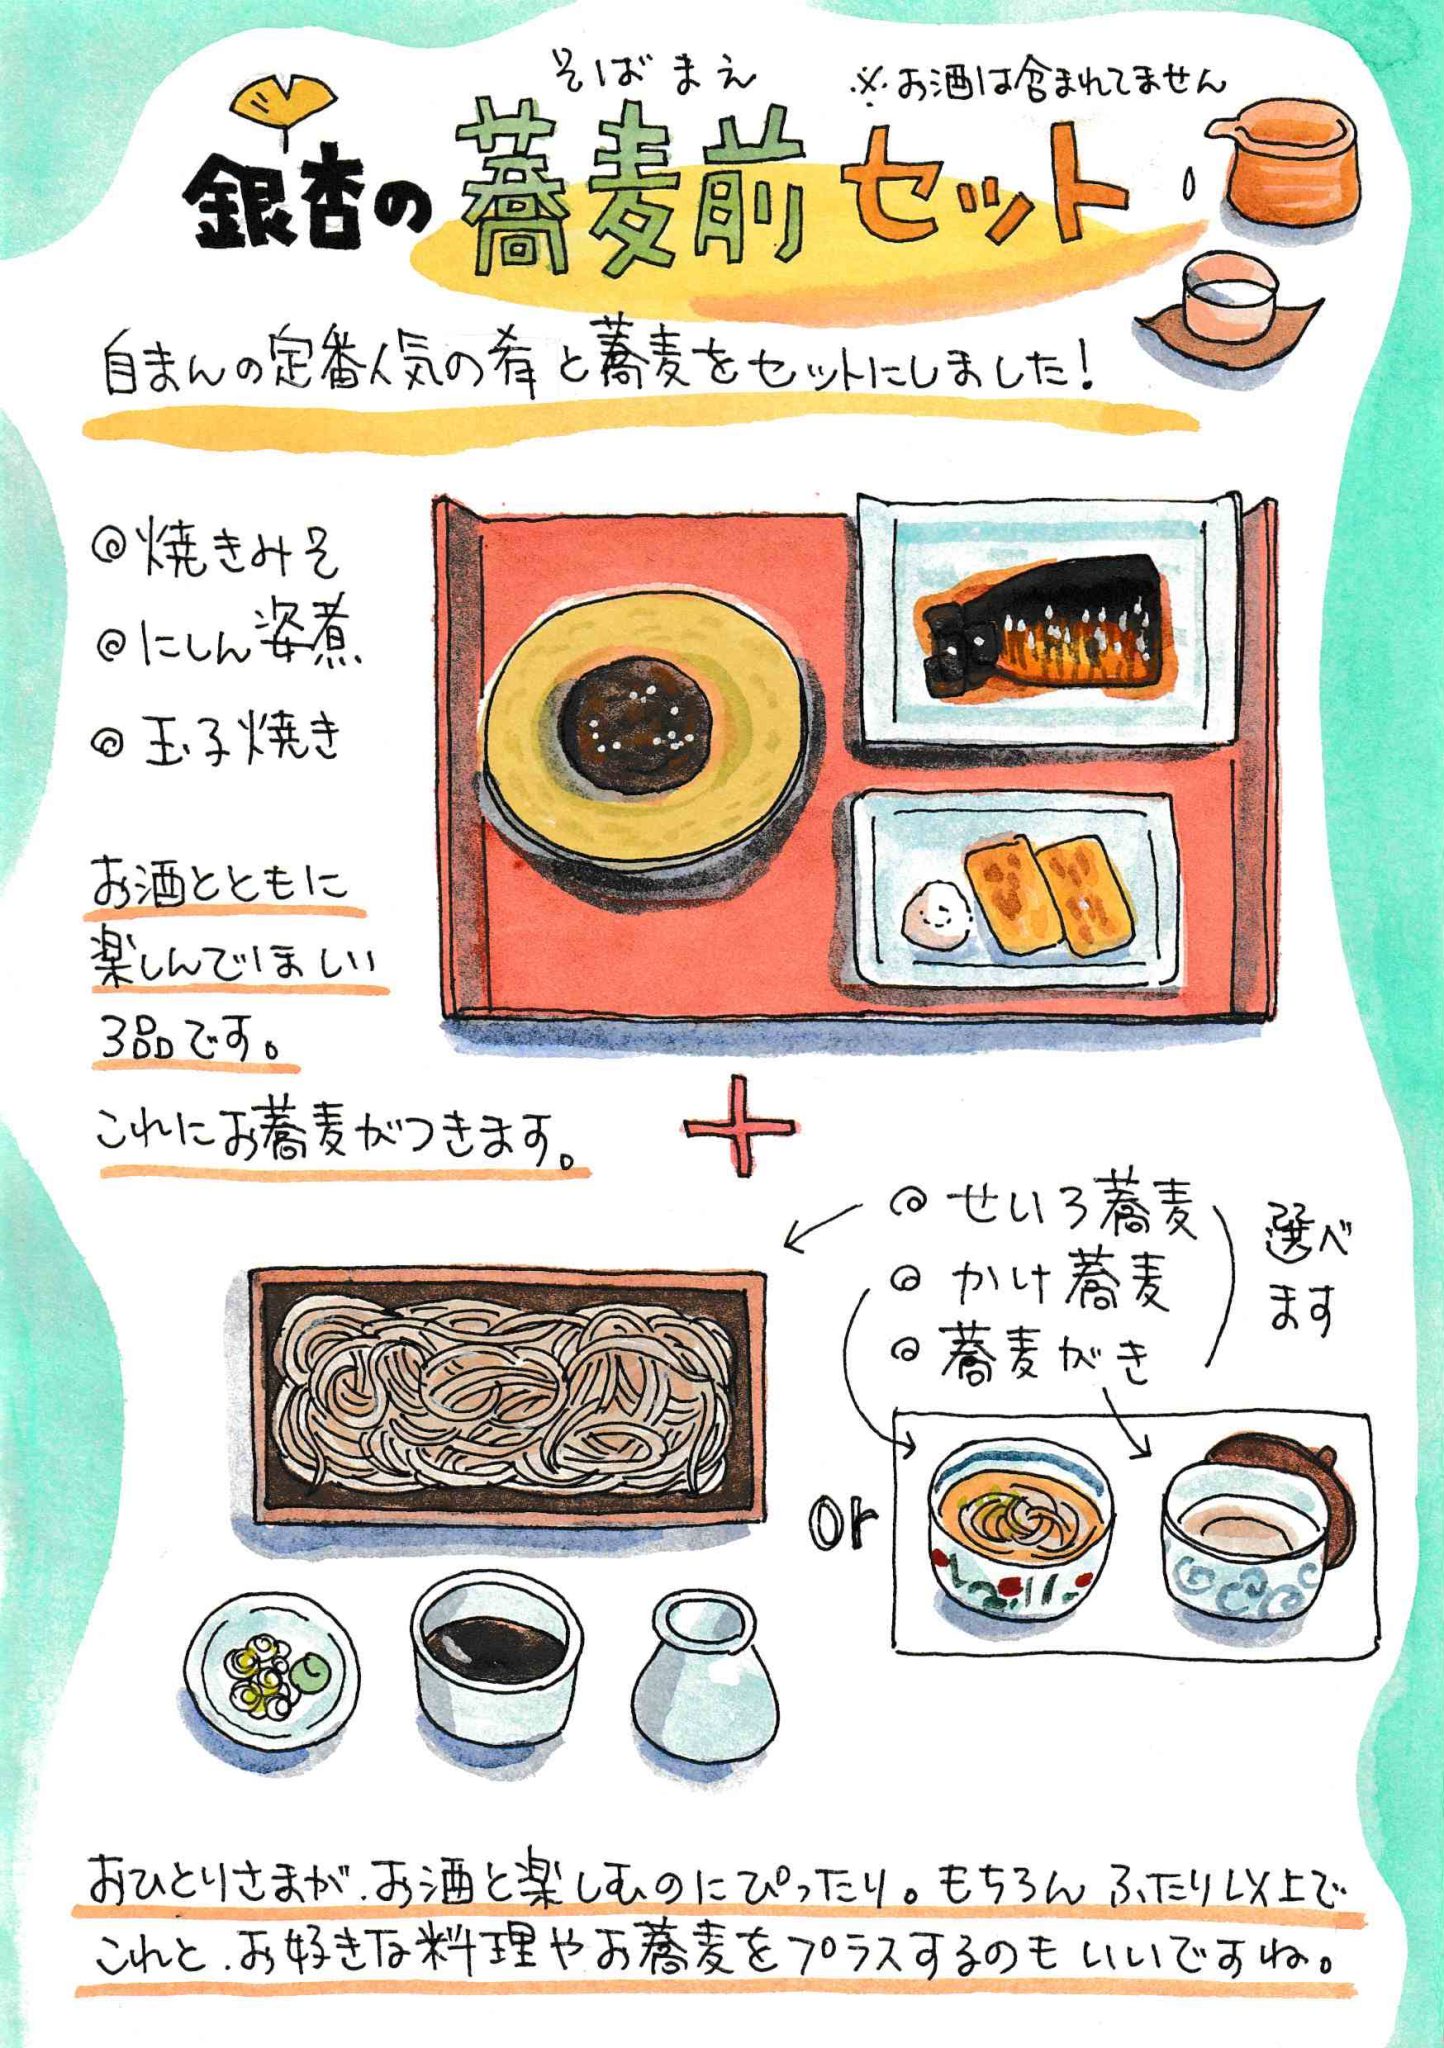 そばまえ
※お酒は含まれてません
銀杏の蕎麦前セット
自まんの定番人気の肴と蕎麦をセットにしました!
◎焼きみそ
◎にしん姿煮
◎玉子焼き
お酒とともに
楽しんでほしい
3品です。
これにお蕎麦がつきます。
+
◎せいろ蕎麦
◎かけ蕎麦
◎蕎麦がき
選べ
ます
or
おひとりさまが、お酒と楽しむのにぴったり。もちろんふたり以上で
これと、お好きな料理やお蕎麦をプラスするのもいいですね。